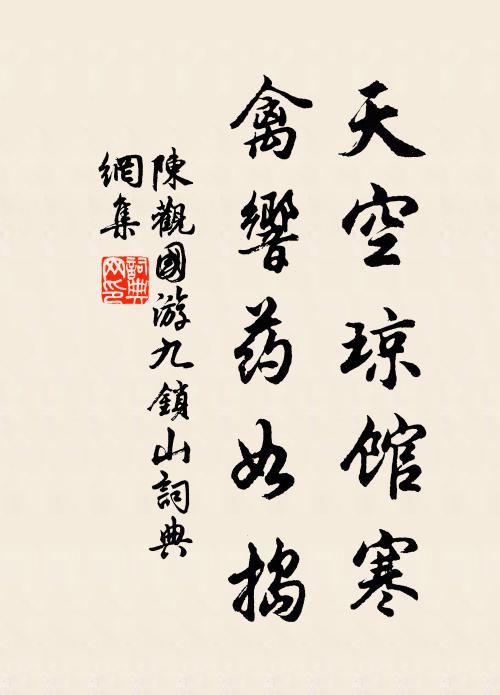 天空琼馆寒
禽響药如搗
陳觀國游九鎖山詞典
網集
詞典網印